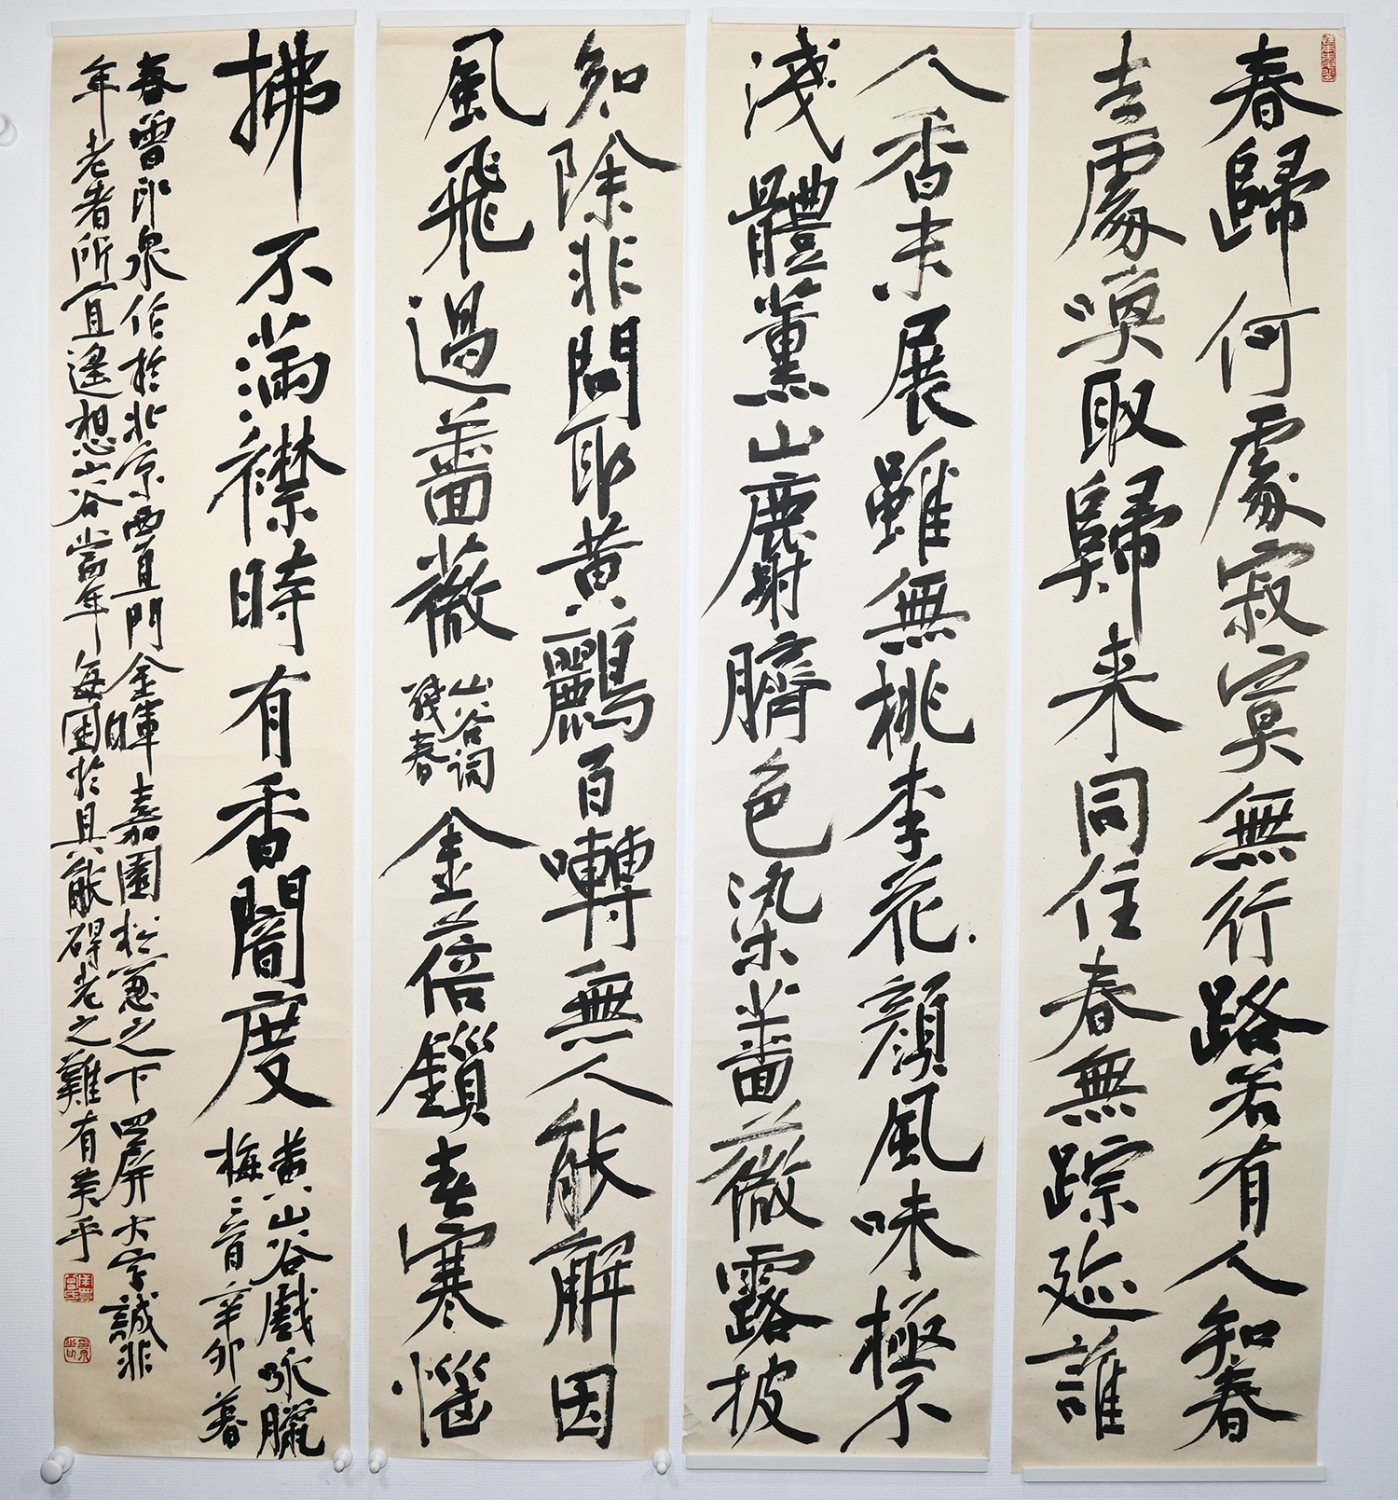 春歸何處寂寞無行路若有人知春
去處喚取歸来同住春無踪迹誰
知除非問取黄鸝百囀無人能解因
風飛過薔薇
山谷詞
殘春
金蓓鎖春寒惱
人香未展雖無桃李花顏風味極不
淺體薰山麝臍色染薔薇露披
拂不滿襟時有香闇度
黄山谷戲咏臘
梅二首辛卯暮
春曾印泉作於北京西直門金暉嘉園於窗之下四屏大字誠非
年老者所宜遙想山谷當年每困於具能碍老之難有美乎